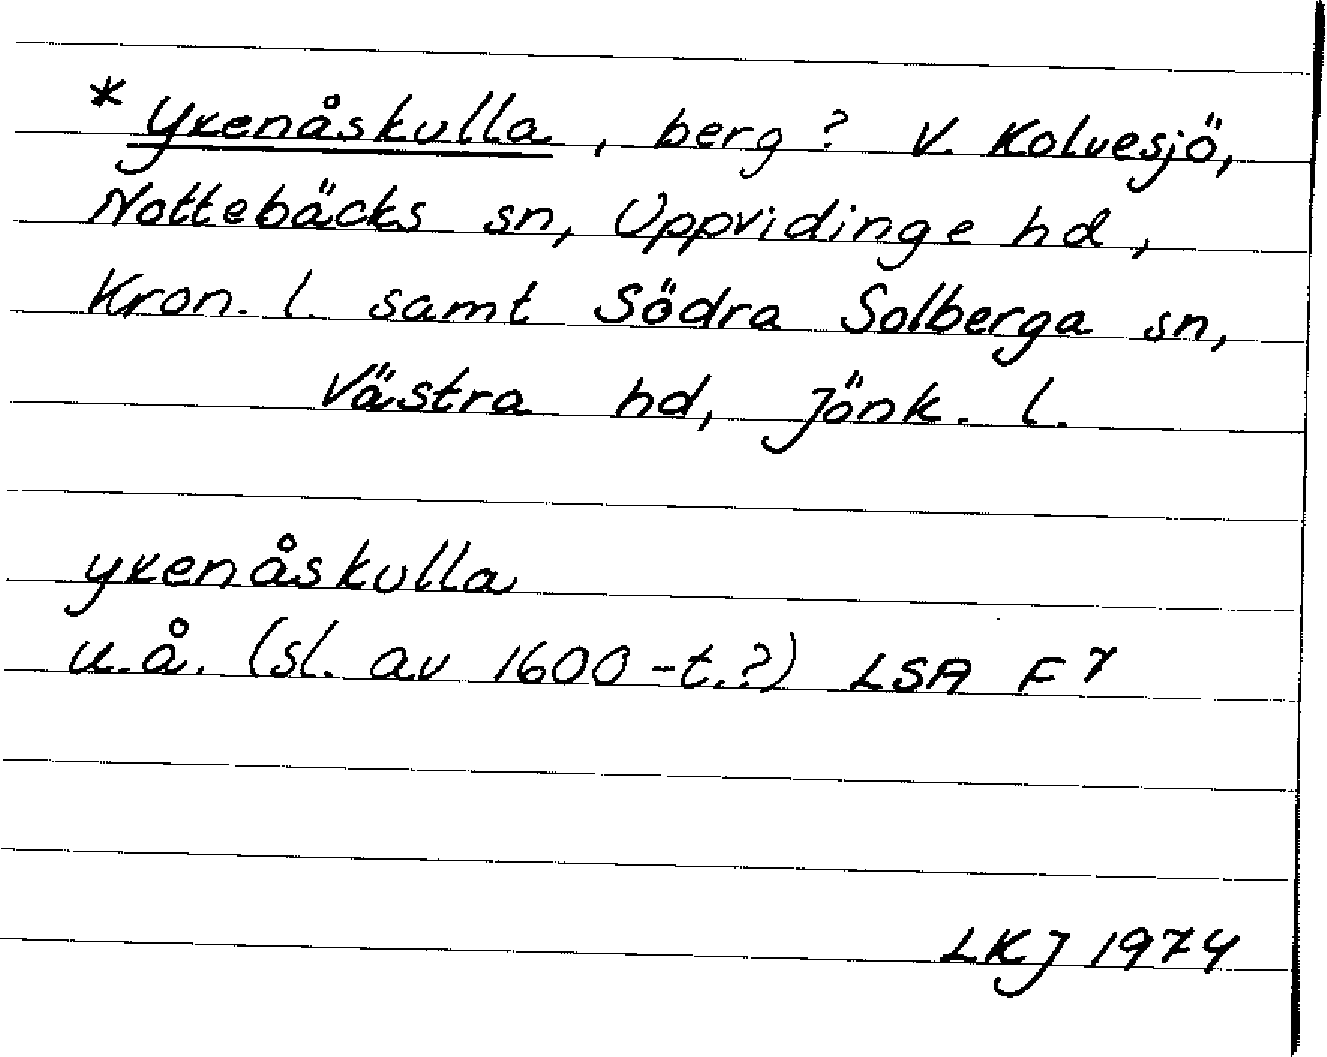 * Yxenåskulla, berg? V. Kolvesjö,
Nottebäcks sn, Uppvidinge hd,
Kron. l. samt Södra Solberga sn,
Västra hd, Jönk. l.
yxenåskulla
u.å. (sl. av 1600-t.?) LSA F γ
LKJ 1974